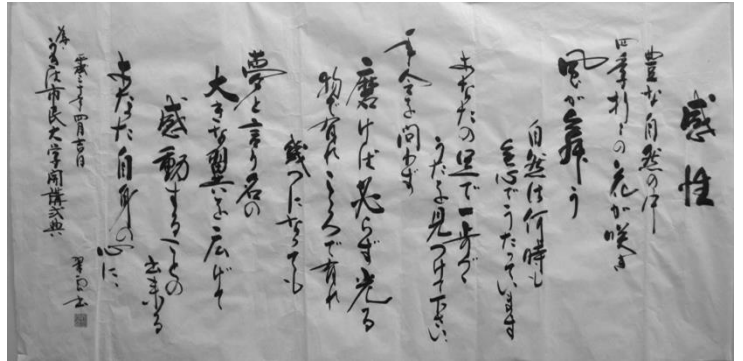 感性
豊な自然の中
四季折々の花が咲き
風が舞う
自然は何時も
無心でうたっています
あなたの足で一歩づつ
うたを見つけて下さい
年令を問わず
磨けば必らず光る
物で有れこころで有れ
幾つになっても
夢と言う名の
大きな翼を広げて
感動することの
出来る
あなた自身の心に、
平成二十年四月吉日
市民大学開講式典